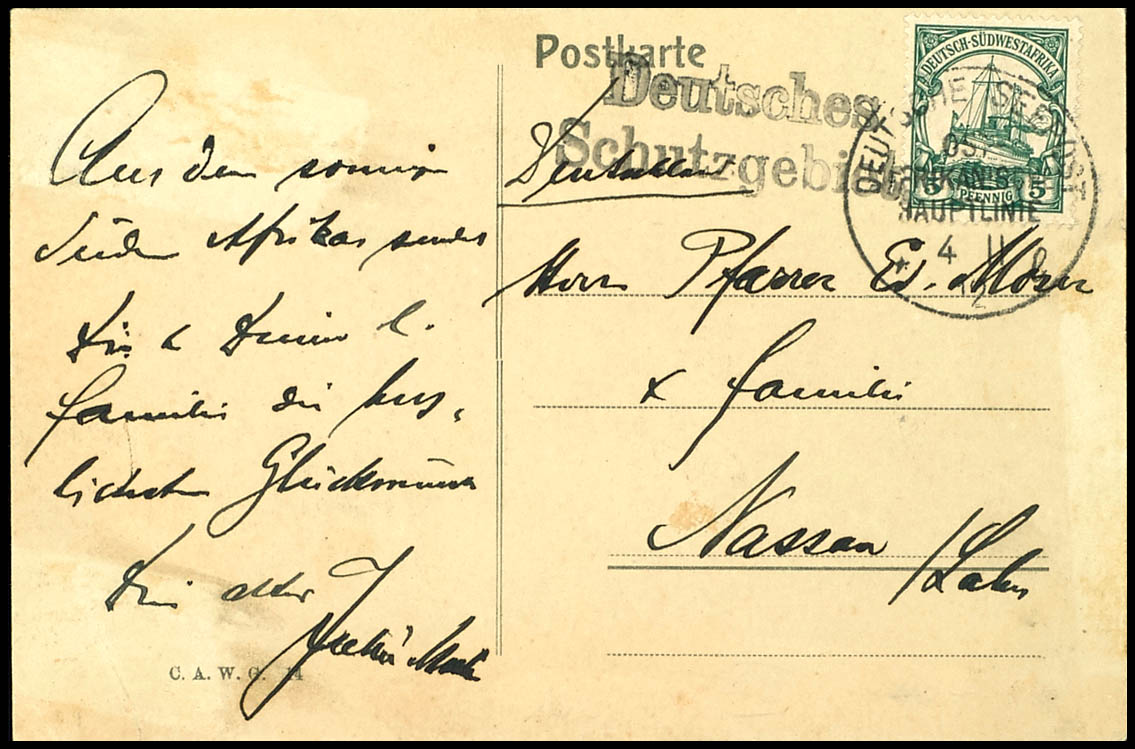 Postkarte
Deutsches
Schutzgebiet
DEUTSCH-SÜDWESTAFRIKA
5 PFENNIG 5
DEUTSCHE SEEPOST
OST
AFRIKANISCHE
HAUPTLINIE
4 11
Deutschland
Herrn Pfarrer Ed. Moser
x Familie
Nassau
/Lahn
Aus dem sonnigen
Süden Afrikas sendet
Dir & Deiner l.
Familie die herz-
lichsten Glückwünsche
Dein alter
C. A. W. G. 14